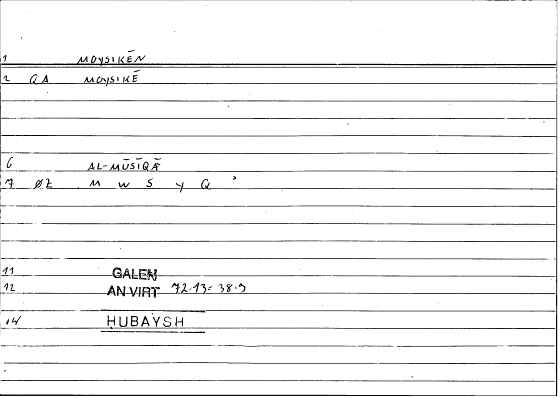 1 MOYSIKĒN
2 QA MOYSIKĒ
6 AL-MŪSĪQĀ
7 ØZ M W S Y Q ʾ
11 GALEN
12 AN VIRT 72.13 = 38.9
14 HUBAYSH